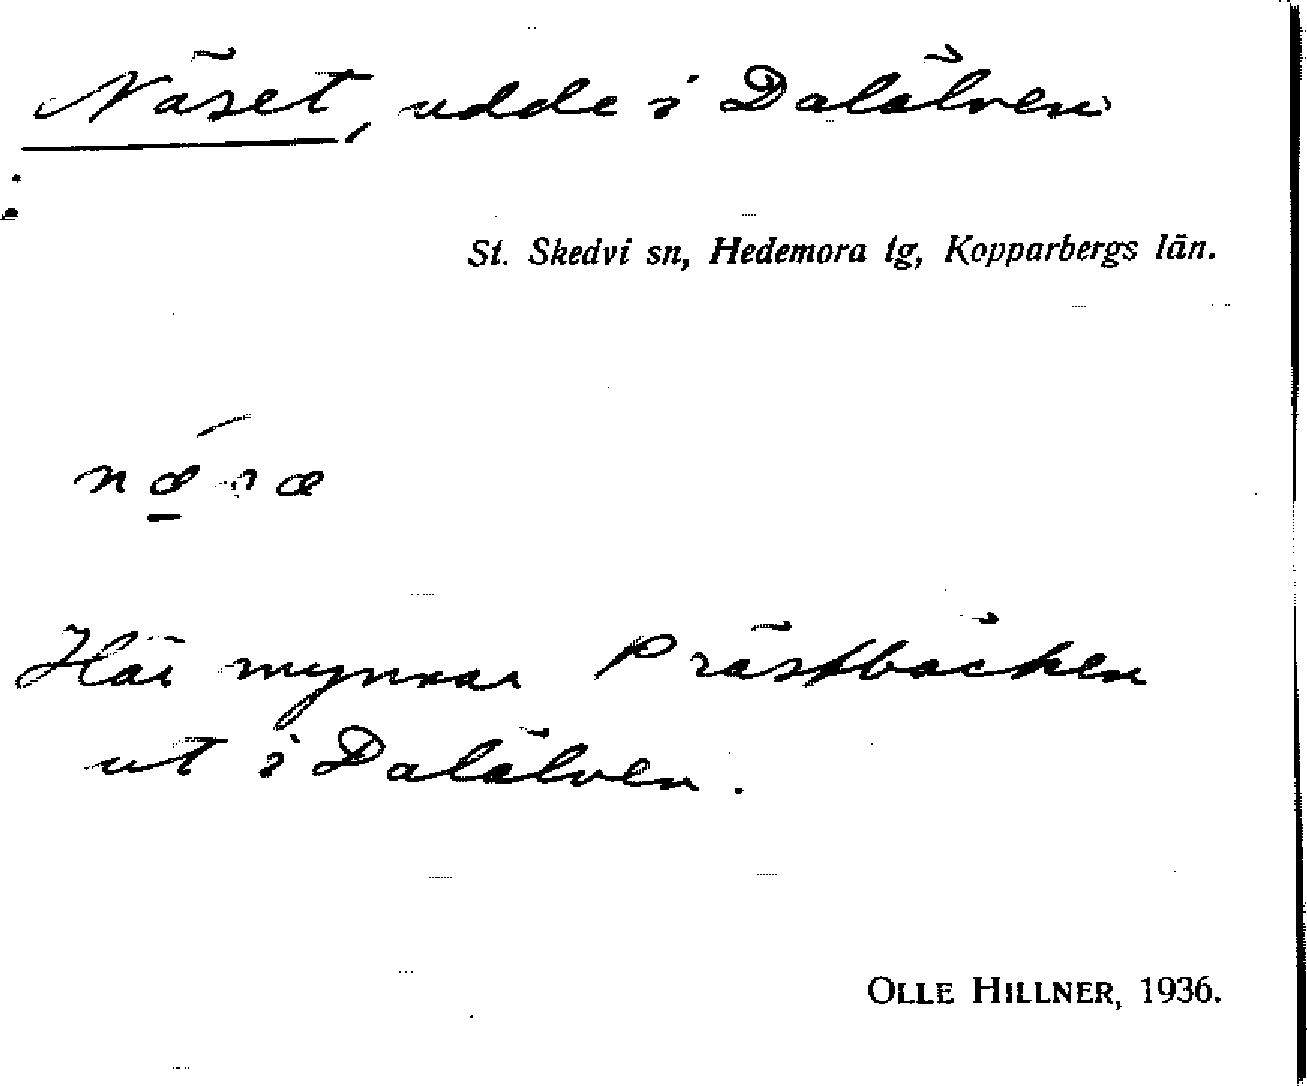 Näset, udde i Dalälven
St. Skedvi sn, Hedemora tg, Kopparbergs län.
Här mynnar Prästbäcken
ut i Dalälven.
OLLE HILLNER, 1936.